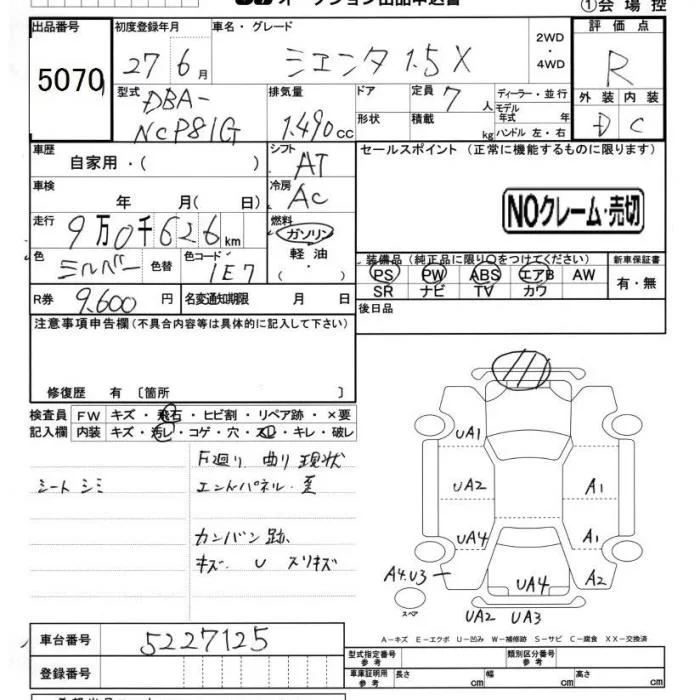 オークション出品申込書
①会場控
出品番号 初度登録年月 車名・グレード 評価点
5070 27年6月 シエンタ 1.5 X 2WD・4WD R
型式 排気量 ドア 定員 7人 ディーラー・並行 外装 内装
DBA-NCP81G 1.490cc 形状 積載 kg モデル年式 年 ハンドル 左・右 D C
車歴 シフト セールスポイント (正常に機能するものに限ります)
自家用・( ) AT
車検 冷房
年 月( 日) AC
NOクレーム・売切
走行 燃料
9万0千626km ガソリン
軽油
・( )
色 色替 色コード 装備品(純正品に限り○をつけてください) 新車保証書
シルバー 1E7 PS PW ABS エアB AW 有・無
SR ナビ TV カワ
R券 9.600円 名変通知期限 月 日 後日品
注意事項申告欄(不具合内容等は具体的に記入して下さい)
修復歴 有 〔箇所 〕
検査員 FW キズ・飛石・ヒビ割・リペア跡・×要
記入欄 内装 キズ・汚レ・コゲ・穴・スレ・キレ・破レ
下廻り 曲り 現状
シート シミ エンドパネル・歪
カンバン 跡
キズ. U スリキズ
UA1
UA2 A1
UA4 A1
A4.U3 UA4 A2
スペア
UA2 UA3
A-キズ E-エクボ U-凹み W-補修跡 S-サビ C-腐食 XX-交換済
車台番号 5227125
型式指定番号 参考 類別区分番号 参考
登録番号 車庫証明用 参考 長さ cm 幅 cm 高さ cm